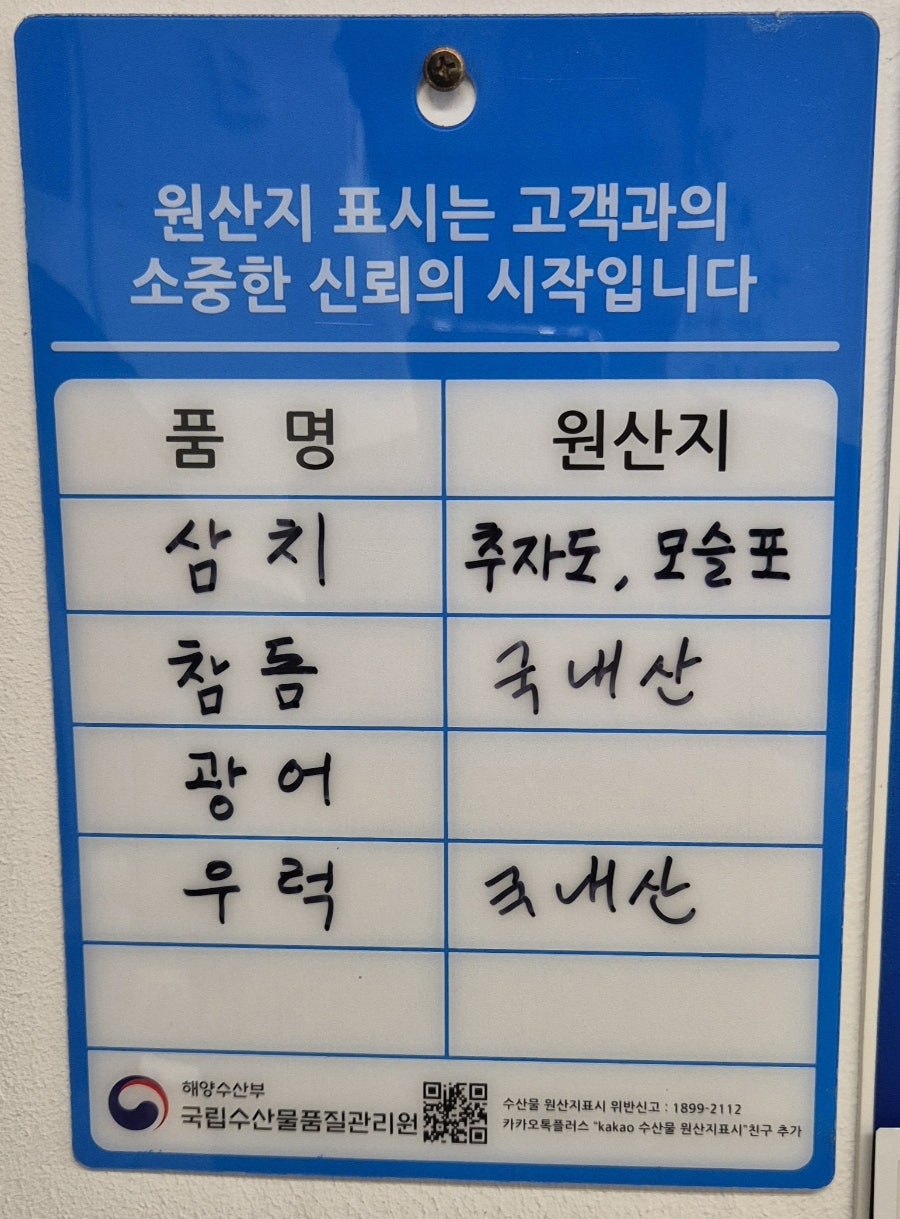 원산지 표시는 고객과의
소중한 신뢰의 시작입니다
품 명 원산지
삼 치 추자도, 모슬포
참 돔 국내산
광 어
우 럭 국내산
해양수산부
국립수산물품질관리원
수산물 원산지표시 위반신고 : 1899-2112
카카오톡플러스 "kakao 수산물 원산지표시"친구 추가